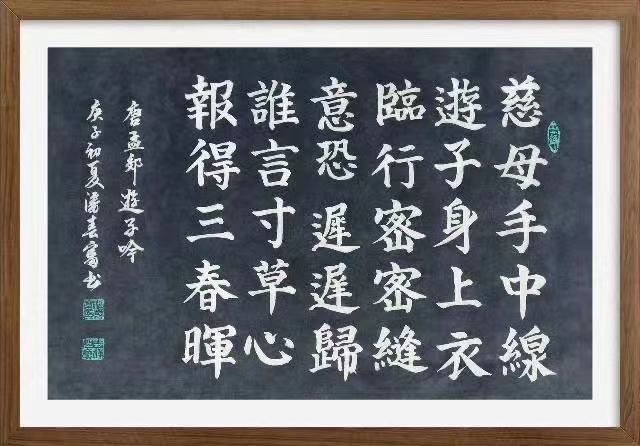 慈母手中線
遊子身上衣
臨行密密縫
意恐遲遲歸
誰言寸草心
報得三春暉
唐孟郊遊子吟
庚子初夏潘春富书